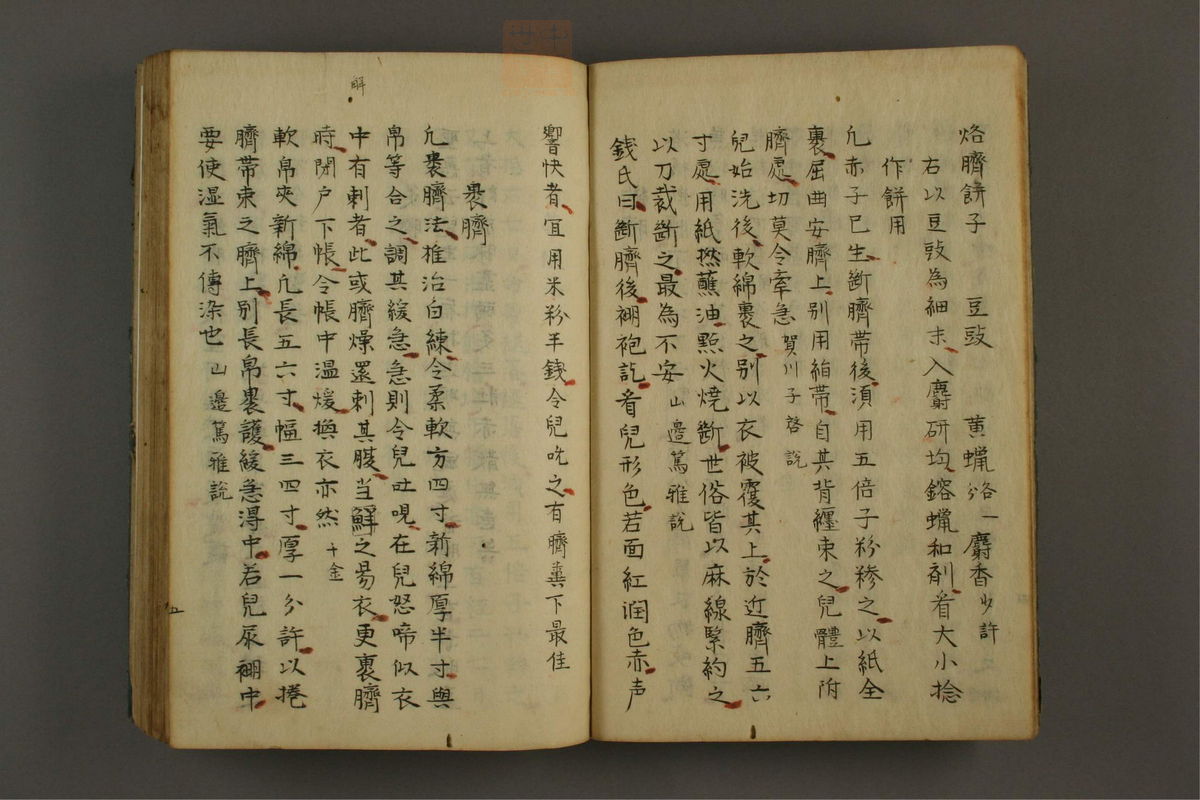 烙臍餅子　豆豉　黄蝋各一分　麝香少許
右以豆豉為細末入麝研均鎔蝋和剤看大小捻
作餅用
凢赤子已生断臍帯後須用五倍子粉糝之以紙全
裹屈曲安臍上别用絈帯自其背纏束之兒體上附
臍處切莫令牽急　賀川子啓説
兒始洗後軟綿裹之别以衣被覆其上於近臍五六
寸處用紙撚蘸油點火燒斷世俗皆以麻線緊約之
以刀裁斷之最為不安　山邉篤雅説
錢氏曰斷臍後褓袍訖看兒形色若面紅潤色赤声
響快者冝用米粉半錢令兒吮之有臍糞下最佳
裹臍
凢裹臍法椎治白練令柔軟方四寸新綿厚半寸與
帛等合之調其緩急急則令兒吐哯在兒怒啼似衣
中有刺者此或臍燥還刺其腹当觧之昜衣更裹臍
時閉戸下帳令帳中温煖換衣亦然　千金
軟帛夾新綿凢長五六寸幅三四寸厚一分許以捲
臍帯束之臍上别長帛裹護緩急淂中若兒尿褓中
要使湿氣不傳染也　山邉篤雅説
解
五